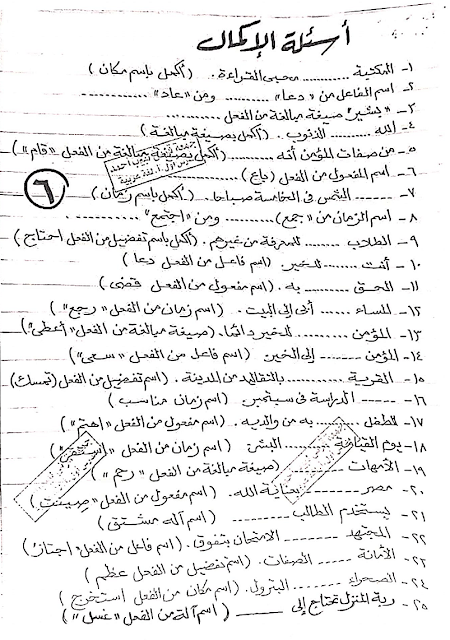 أسئلة الإكمال
١- المكتبة ............ محبى القراءة . (أكمل باسم مكان)
٢- اسم الفاعل من "دعا" ............ ومن "عاد" ............
٣- "بشير" صيغة مبالغة من الفعل ............
٤- الله ............ الذنوب . (أكمل بصيغة مبالغة)
٥- من صفات المؤمن أنه ............ (أكمل بصيغة مبالغة من الفعل "قام")
٦- اسم المفعول من الفعل (باع) ............
٧- ............ الشمس فى الخامسة صباحا . (أكمل باسم زمان)
٨- اسم الزمان من "جمع" ............ ومن "اجتمع" ............
٩- الطلاب ............ للمعرفة من غيرهم . (أكمل باسم تفضيل من الفعل احتاج)
١٠- أنت ............ للخير . (اسم فاعل من الفعل دعا)
١١- الحق ............ به . (اسم مفعول من الفعل قضى)
١٢- المساء ............ أبى إلى البيت . (اسم زمان من الفعل "رجع")
١٣- المؤمن ............ للخير دائما . (صيغة مبالغة من الفعل "أعطى")
١٤- المؤمن ............ إلى الخير (اسم فاعل من الفعل "سعى")
١٥- القرية ............ بالتقاليد من المدينة . (اسم تفضيل من الفعل (تمسك)
١٦- ............ الدراسة فى سبتمبر . (اسم زمان مناسب)
١٧- الطفل ............ به من والديه . (اسم مفعول من الفعل "اهتم")
١٨- يوم القيامة ............ البشر . (اسم زمان من الفعل "
١٩- الأمهات ............ (صيغة مبالغة من الفعل "رحم")
٢٠- مصر ............ بعناية الله . (اسم مفعول من الفعل "صينت)
٢١- يستخدم الطالب ............ (اسم آلة مشتق)
٢٢- المجتهد ............ الامتحان بتفوق . (اسم فاعل من الفعل "اجتاز)
٢٣- الأمانة ............ الصفات . (اسم تفضيل من الفعل عظم)
٢٤- الصحراء ............ البترول . (اسم مكان من الفعل استخرج)
٢٥- ربة المنزل تحتاج إلى ............ (اسم آلة من الفعل "غسل")
٦